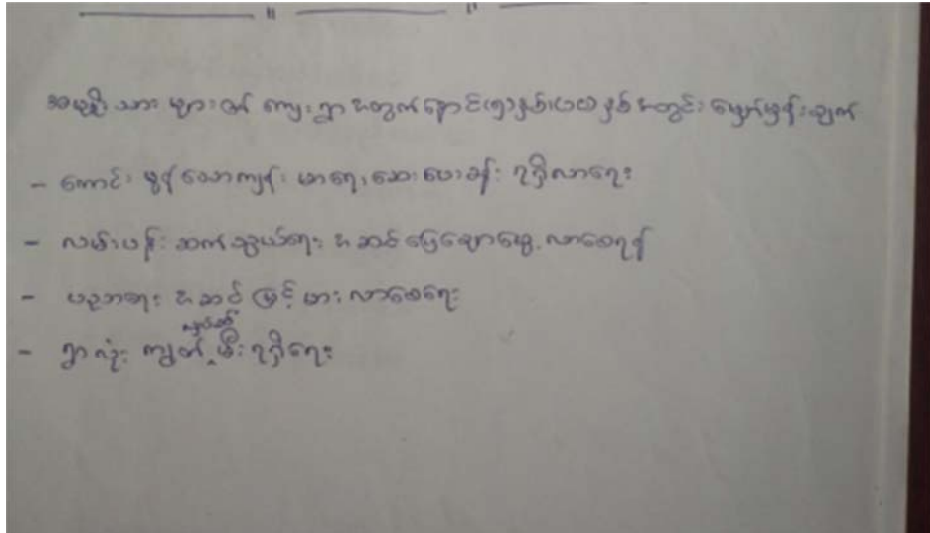 အမျိုးသားများ၏ ကျေးရွာအတွက်နောင်(၅)နှစ် (၁၀)နှစ်အတွင်း မျှော်မှန်းချက်
- ကောင်းမွန်သောကျန်းမာရေးဆေးပေးခန်း ရရှိလာရေး
- လမ်းပန်းဆက်သွယ်ရေး အဆင်ပြေချောမွေ့လာစေရန်
- ပညာရေး အဆင့်မြင့်မားလာစေရေး
- ရွာလုံးကျွတ် လျှပ်စစ် မီးရရှိရေး